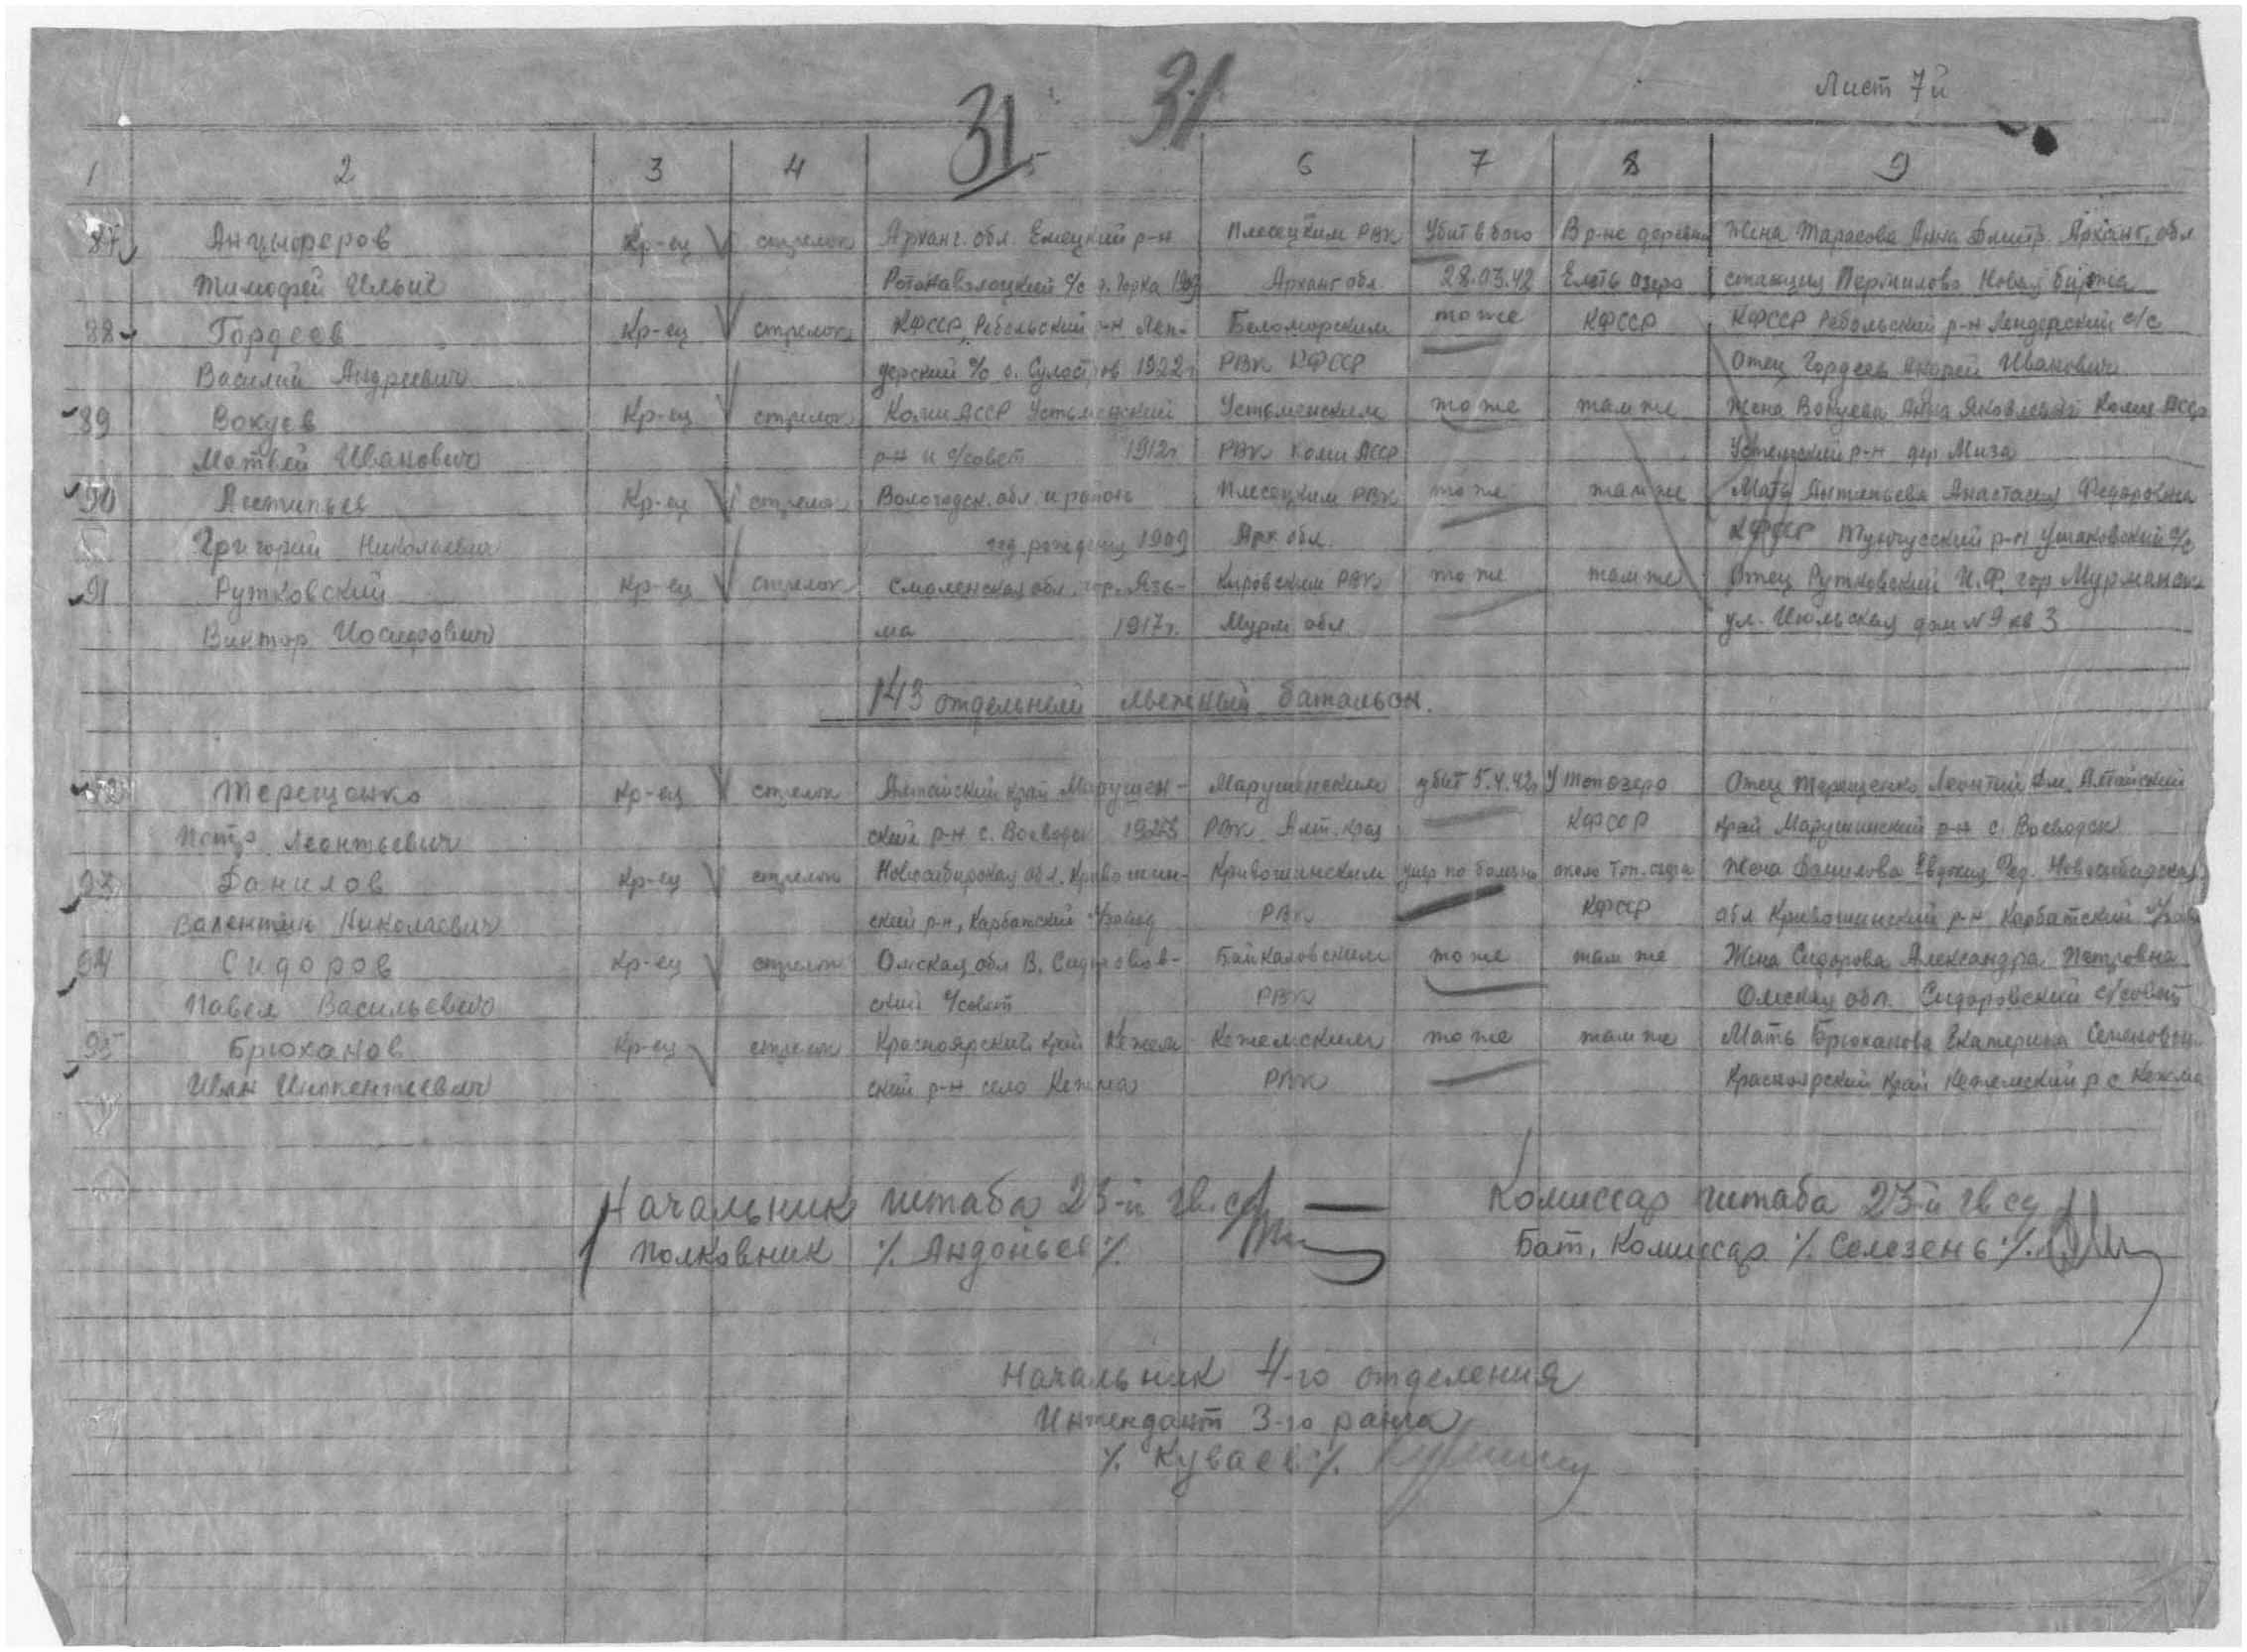 Лист 7й
31 31
1 2 3 4 5 6 7 8 9
87 Анцыферов Кр-ец стрелок Арханг. обл. Емецкий р-н Плесецким РВК Убит в бою В р-не деревни Жена Тарасова Анна Дмитр. Арханг. обл
Тимофей Ильич с/с д. Горка 1909 Арханг обл 28.03.42 Елеть озеро станция Пермилово Новая биржа
88 Гордеев Кр-ец стрелок КФССР, Ребольский р-н Лен- Беломорским то же КФССР КФССР Ребольский р-н Лендерский с/с
Василий Андреевич дерский с/с о. Сулостров 1922г РВК КФССР Отец Гордеев Андрей Иванович
89 Вокуев Кр-ец стрелок Коми АССР Устьменский Устьменским то же там же Жена Вокуева Анна Яковлевна Коми АССР
Матвей Иванович р-н и с/совет 1912г. РВК Коми АССР р-н дер Миза
90 Антипьев Кр-ец стрелок Вологодск. обл. и район Плесецким РВК то же там же Мать Антипьева Анастасия Федоровна
Григорий Николаевич год рождения 1909 Арх. обл. КФССР р-н Ушаковский с/с
91 Рутковский Кр-ец стрелок Смоленская обл. гор. Язь- Кировским РВК то же там же Отец Рутковский И.Ф. гор Мурманск
Виктор Иосифович ма 1917г. Мурм обл ул. Июльская дом N9 кв 3
143 отдельный лыжный батальон.
92 Терещенко Кр-ец стрелок Алтайский край Марушен- Марушенским убит 5.4.42г У Топозеро Отец Терещенко Леонтий Дм. Алтайский
Петр Леонтьевич ский р-н с. Воеводск РВК Алт. край КФССР край Марушинский р-н с. Воеводск
93 Данилов Кр-ец стрелок Новосибирская обл. Кривошин- Кривошинским умер по болезни около Топ. озера Жена Данилова Евдокия Фед. Новосибирская
Валентин Николаевич ский р-н, Карбатский РВК КФССР обл Кривошинский р-н Карбатский
94 Сидоров Кр-ец стрелок Омская обл В. Сидоровск- Байкаловским то же там же Жена Сидорова Александра Петровна
Павел Васильевич ский с/совет РВК Омская обл. Сидоровский с/совет
95 Брюханов Кр-ец стрелок Красноярский край Кежем Кежемским то же там же Мать Брюханова Екатерина Семеновн.
Иван Инокентиевич ский р-н село Кежма РВК Красноярский край Кежемский р с Кежма
Начальник штаба 23-й гв. сд Комиссар штаба 23-й гв сд
Полковник /. Андоньев /. Бат. Комиссар /. Селезень /.
Начальник 4-го отделения
Интендант 3-го ранга
/. Куваев /.